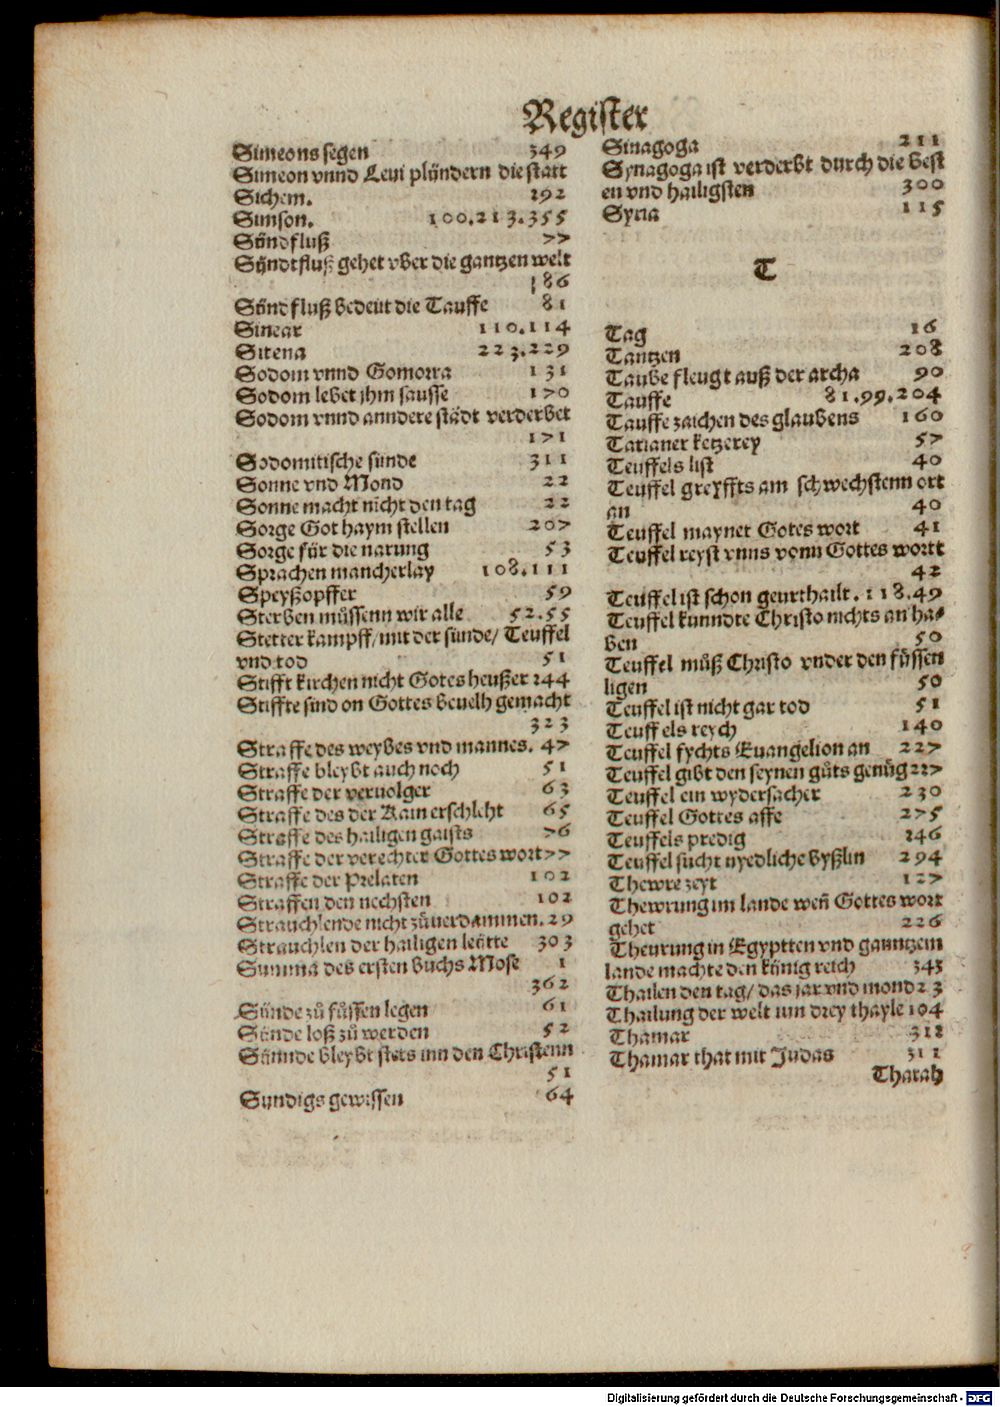 Register
Simeons segen 349
Simeon vnnd Leui plündern die statt
Sichem. 192
Simson. 100.213.355
Sündfluß 77
Sündtfluß gehet vber die gantzen welt
186
Sündfluß bedeut die Tauffe 81
Sinear 110.114
Sitena 223.229
Sodom vnnd Gomorra 131
Sodom lebet jhm sausse 170
Sodom vnnd anndere städt verderbet
171
Sodomitische sünde 311
Sonne vnd Mond 22
Sonne macht nicht den tag 22
Sorge Got haym stellen 207
Sorge für die narung 53
Sprachen mancherlay 108.111
Speyßopffer 59
Sterben müssenn wir alle 52.55
Stetter kampff/mit der sünde/ Teuffel
vnd tod 51
Stifft kirchen nicht Gotes heußer 144
Stiffte sind on Gottes beuelh gemacht
323
Straffe des weybes vnd mannes. 47
Straffe bleybt auch noch 51
Straffe der veruolger 63
Straffe des der Kain erschlcht 65
Straffe des hailigen gaists 76
Straffe der verechter Gottes wort 77
Straffe der Prelaten 102
Straffen den nechsten 102
Strauchlende nicht zůuerdammen. 29
Strauchlen der hailigen leütte 303
Summa des ersten buchs Mose 1
362
Sünde zů fůssen legen 61
Sünde loß zů werden 52
Sünnde bleybt stets inn den Christenn
51
Sündigs gewissen 64
Sinagoga 211
Synagoga ist verderbt durch die best
en vnd hailigsten 300
Syria 115
T
Tag 16
Tantzen 208
Taube fleugt auß der archa 90
Tauffe 81.99.204
Tauffe zaichen des glaubens 160
Tatianer ketzerey 57
Teuffels list 40
Teuffel greyffts am schwechstenn ort
an 40
Teuffel maynet Gotes wort 41
Teuffel reyst vnns vonn Gottes wortt
42
Teuffel ist schon geurthailt. 118.49
Teuffel kunndte Christo nichts an ha-
ben 50
Teuffel můß Christo vnder den fůssen
ligen 50
Teuffel ist nicht gar tod 51
Teuffels reych 140
Teuffel fychts Euangelion an 227
Teuffel gibt den seynen gůts genůg 227
Teuffel ein wydersacher 230
Teuffel Gottes affe 275
Teuffels predig 146
Teuffel sucht nyedliche byßlin 294
Thewre zeyt 127
Thewrung im lande weñ Gottes wort
gehet 226
Theurung in Egyptten vnd ganntzem
lande machte den künig reich 343
Thailen den tag/ das jar vnd mond 23
Thailung der welt inn drey thayle 104
Thamar 312
Thamar that mit Judas 311
Tharah
Digitalisierung gefördert durch die Deutsche Forschungsgemeinschaft - DFG